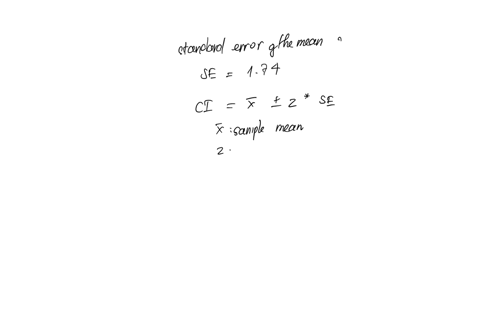 standard error of the mean
SE = 1.74
CI = x̄ ± z * SE
x̄ : sample mean
z.